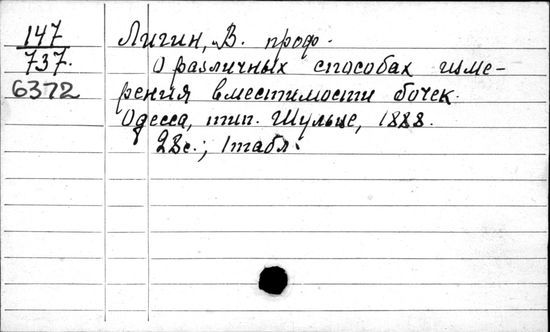 147
737.
6372
Лигин, В. проф.
О различных способах изме-
рения вместимости бочек.
Одесса, тип. Шульце, 1888.
28с.; 1табл.